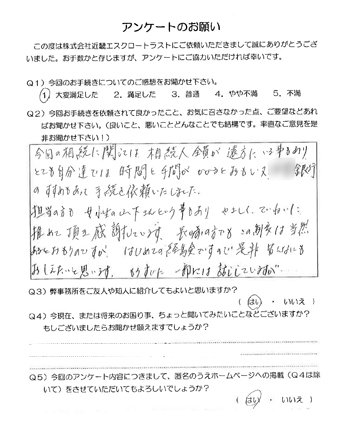 アンケートのお願い
この度は株式会社近畿エスクロートラストにご依頼いただきまして誠にありがとうござ
いました。お手数かと存じますが、アンケートにご協力いただければ幸いです。
Q1）今回のお手続きについてのご感想をお聞かせ下さい。
1．大変満足した　2．満足した　3．普通　4．やや不満　5．不満
Q2）今回お手続きを依頼されて良かったこと、お気に召さなかった点、ご要望などあれ
ばお聞かせ下さい。（良いこと、悪いことどんなことでも結構です。率直なご意見を是
非お聞かせ下さい！）
今回の相続に関しては 相続人全員が遠方にいる事もあり
とても自分達では 時間と手間がかかるとおもい 銀行
のすすめもあり 手続を依頼いたしました。
担当の方も
感謝しています。
はじめての経験ですので是非
とおもいます。
Q3）弊事務所をご友人や知人に紹介してもよいと思いますか？
（ はい ・ いいえ ）
Q4）今現在、または将来のお困り事、ちょっと聞いてみたいことなどございますか？
もしございましたらお聞かせ願えますでしょうか？
Q5）今回のアンケート内容につきまして、匿名のうえホームページへの掲載（Q4は除
いて）をさせていただいてもよろしいでしょうか？
（ はい ・ いいえ ）